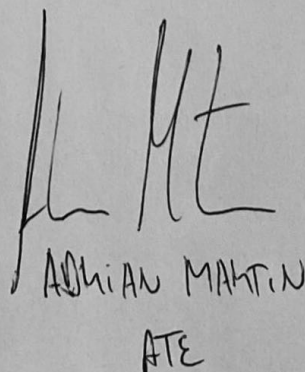 ADRIAN MARTIN
ATE